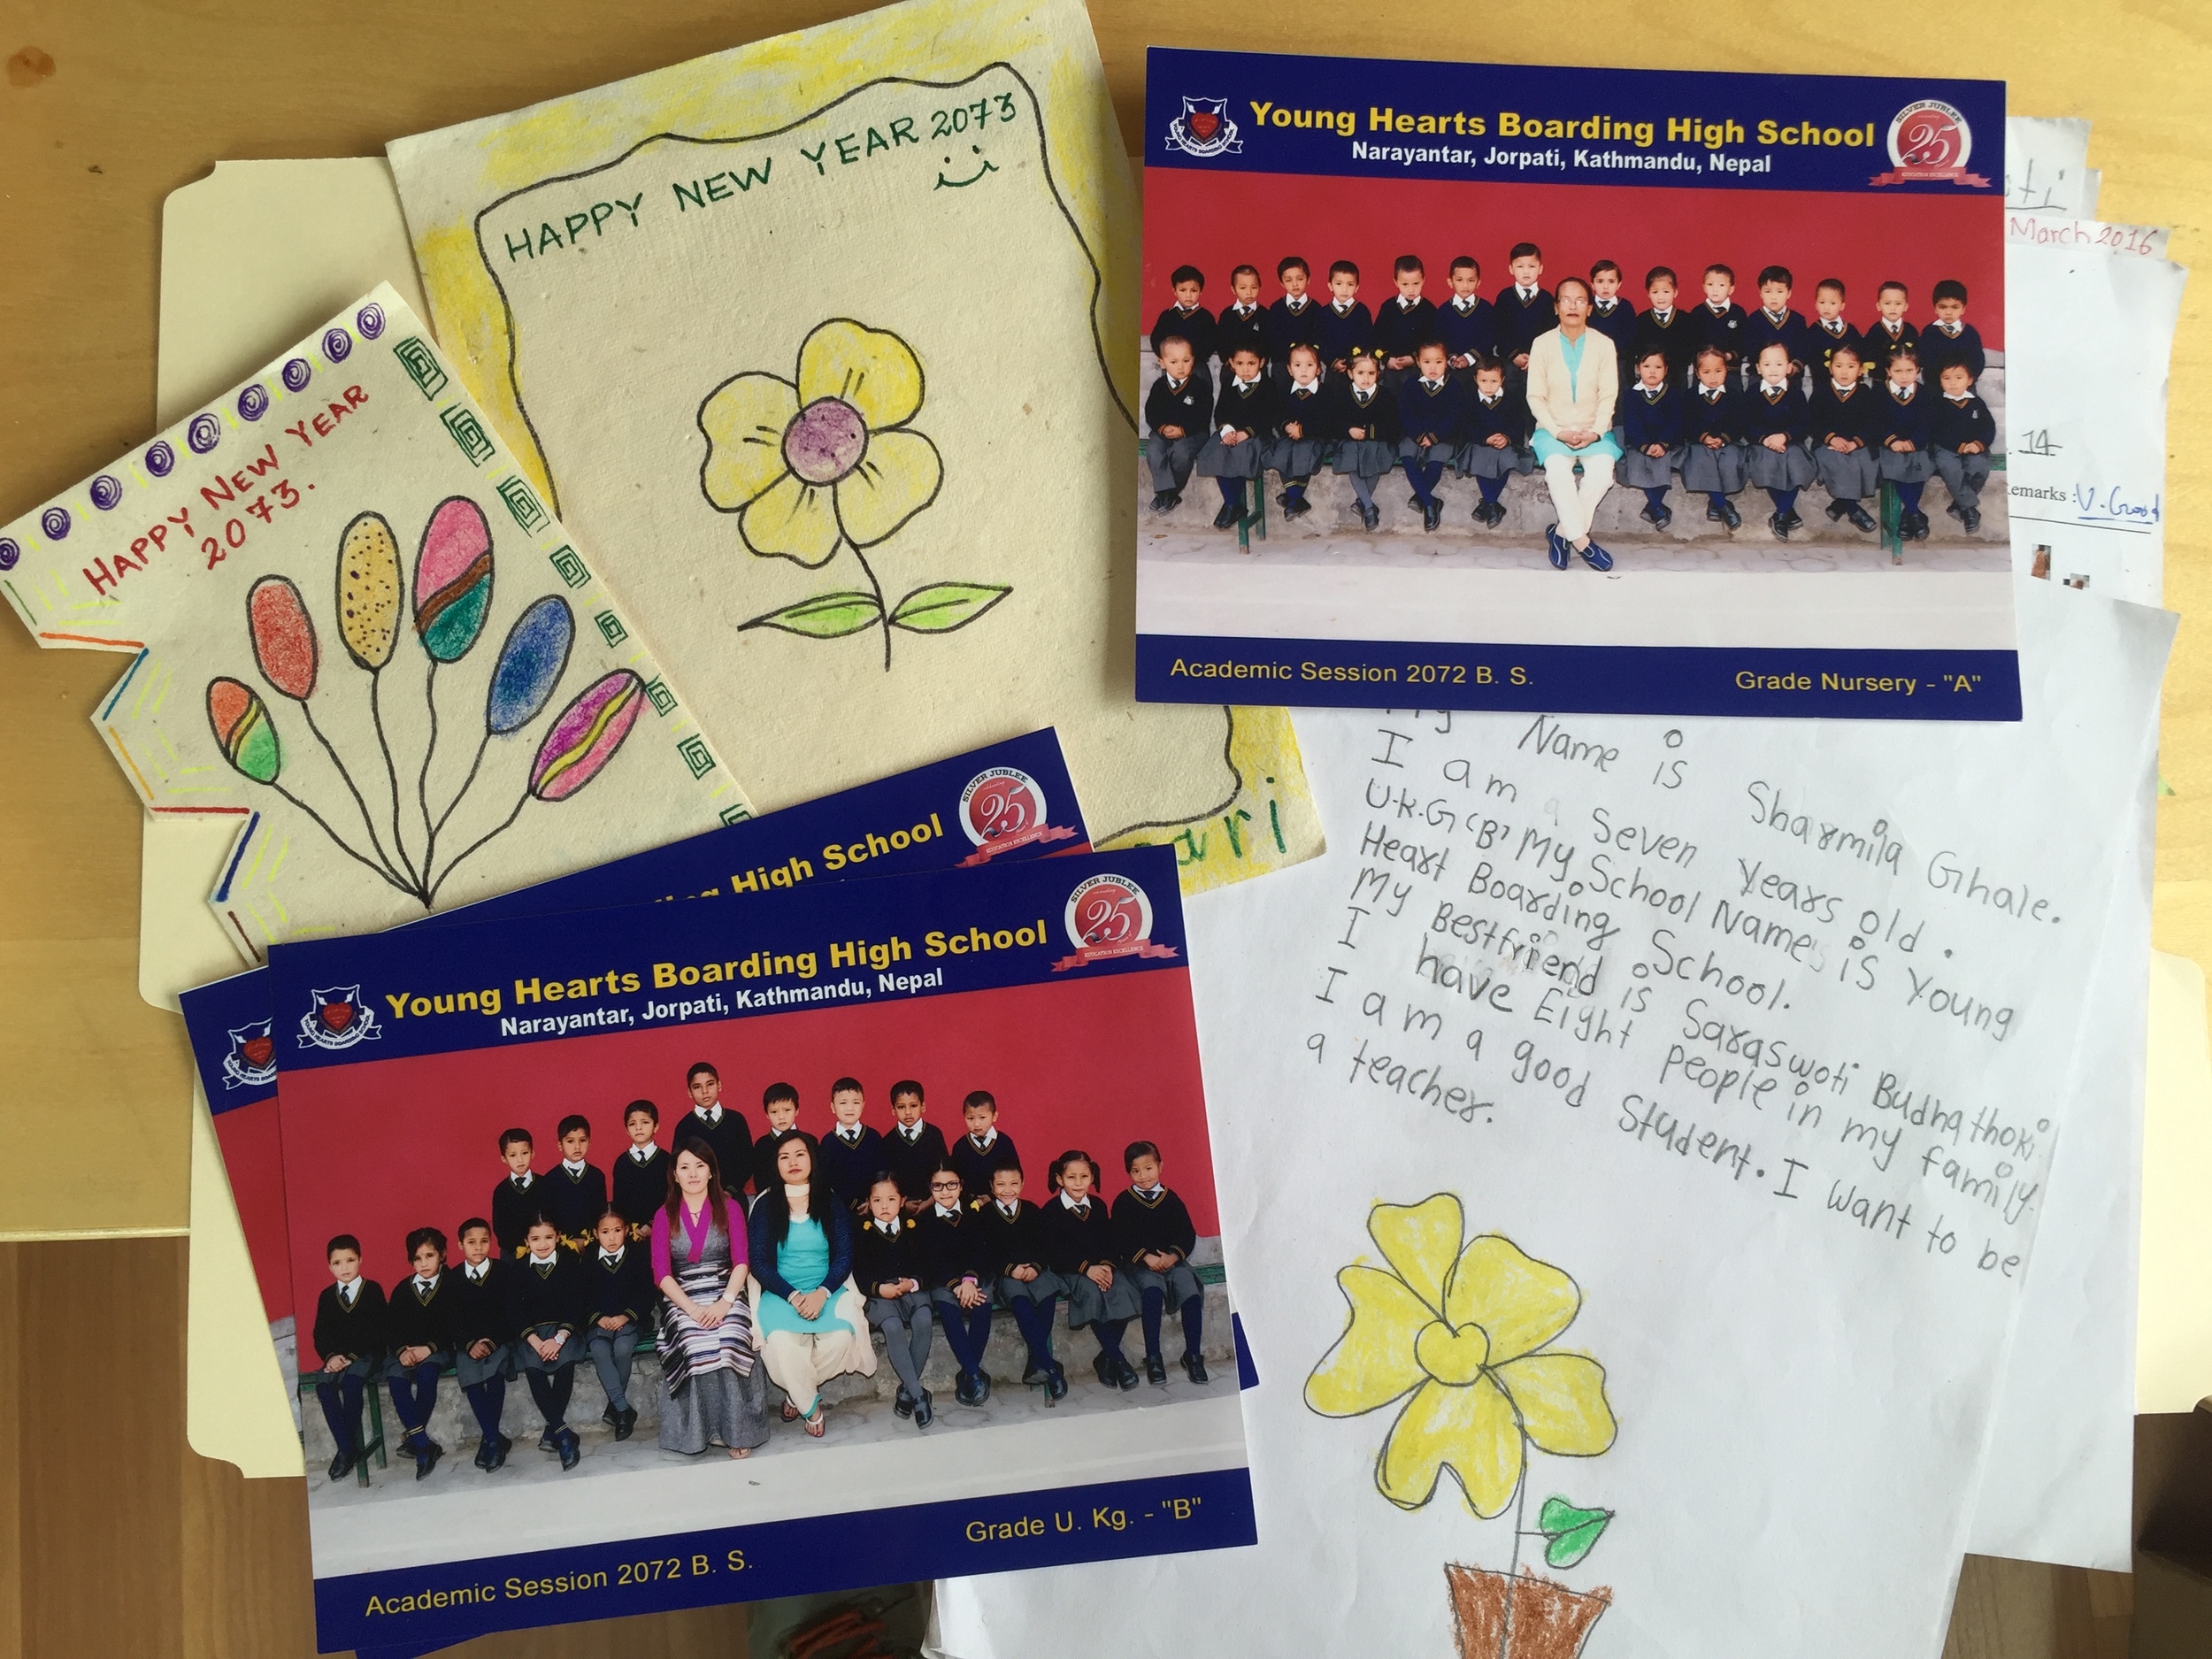 HAPPY NEW YEAR 2073
HAPPY NEW YEAR
2073.
ari
Young Hearts Boarding High School
Narayantar, Jorpati, Kathmandu, Nepal
SILVER JUBLEE
25
EDUCATION EXCELLENCE
Academic Session 2072 B. S.
Grade Nursery - "A"
ti
March 2016
14
emarks : V. Good
My Name is Sharmila Ghale.
I am a Seven Years old.
U.K.G 'B' My School Name's is Young
Heart Boarding School.
My Bestfriend is Saraswoti Budhathoki
I have Eight people in my family.
I am a good Student. I want to be
a teacher.
ng High School
SILVER JUBLEE
25
Young Hearts Boarding High School
Narayantar, Jorpati, Kathmandu, Nepal
SILVER JUBLEE
25
EDUCATION EXCELLENCE
Academic Session 2072 B. S.
Grade U. Kg. - "B"